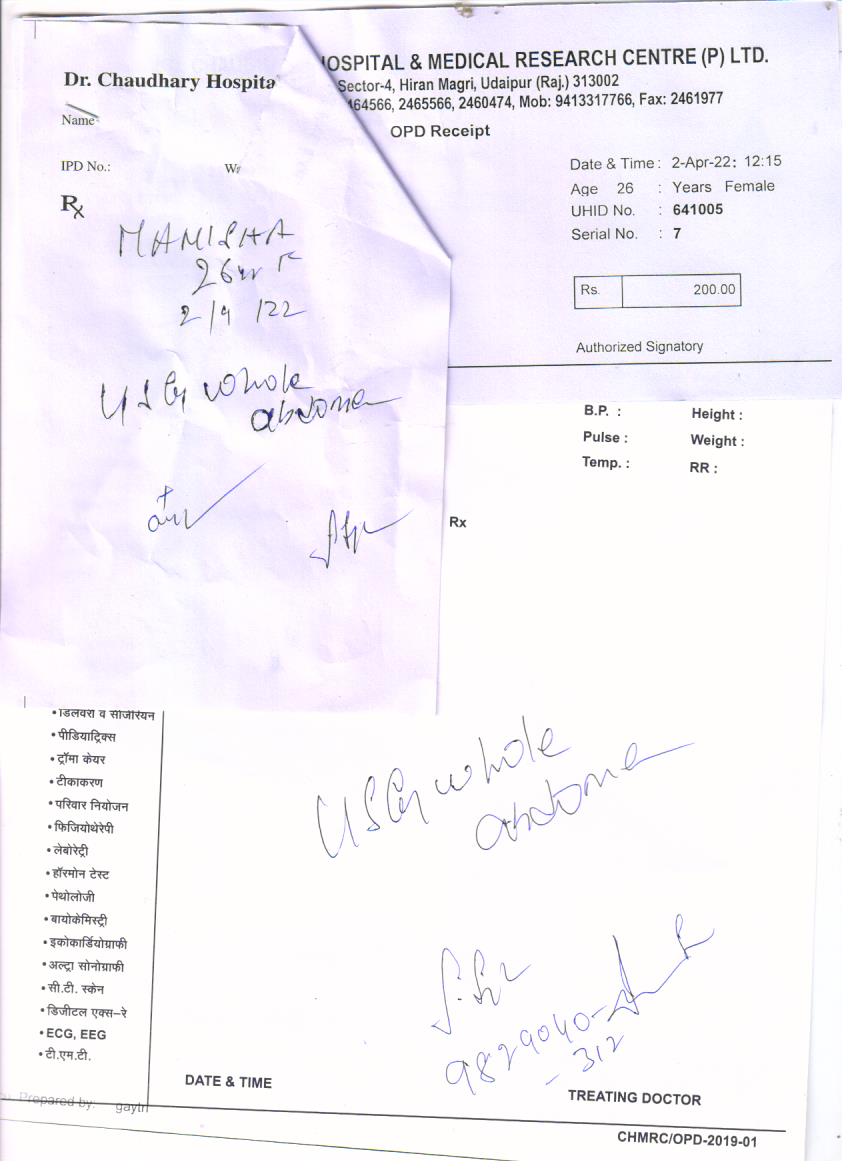 Dr. Chaudhary Hospita
Name
IPD No.:
Rx
MANISHA
26 yr F
2/4/22
USG whole
abdomen
OSPITAL & MEDICAL RESEARCH CENTRE (P) LTD.
Sector-4, Hiran Magri, Udaipur (Raj.) 313002
464566, 2465566, 2460474, Mob: 9413317766, Fax: 2461977
OPD Receipt
Date & Time : 2-Apr-22: 12:15
Age 26 : Years Female
UHID No. : 641005
Serial No. : 7
Rs. 200.00
Authorized Signatory
B.P. : Height :
Pulse : Weight :
Temp. : RR :
Rx
• डिलेवरी व सीजेरियन
• पीडियाट्रिक्स
• ट्रॉमा केयर
• टीकाकरण
• परिवार नियोजन
• फिजियोथेरेपी
• लेबोरेट्री
• हॉरमोन टेस्ट
• पेथोलोजी
• बायोकेमिस्ट्री
• इकोकार्डियोग्राफी
• अल्ट्रा सोनोग्राफी
• सी.टी. स्केन
• डिजीटल एक्स–रे
• ECG, EEG
• टी.एम.टी.
USG whole
abdomen
9829040-
- 312
DATE & TIME
TREATING DOCTOR
Prepared by: gaytri
CHMRC/OPD-2019-01